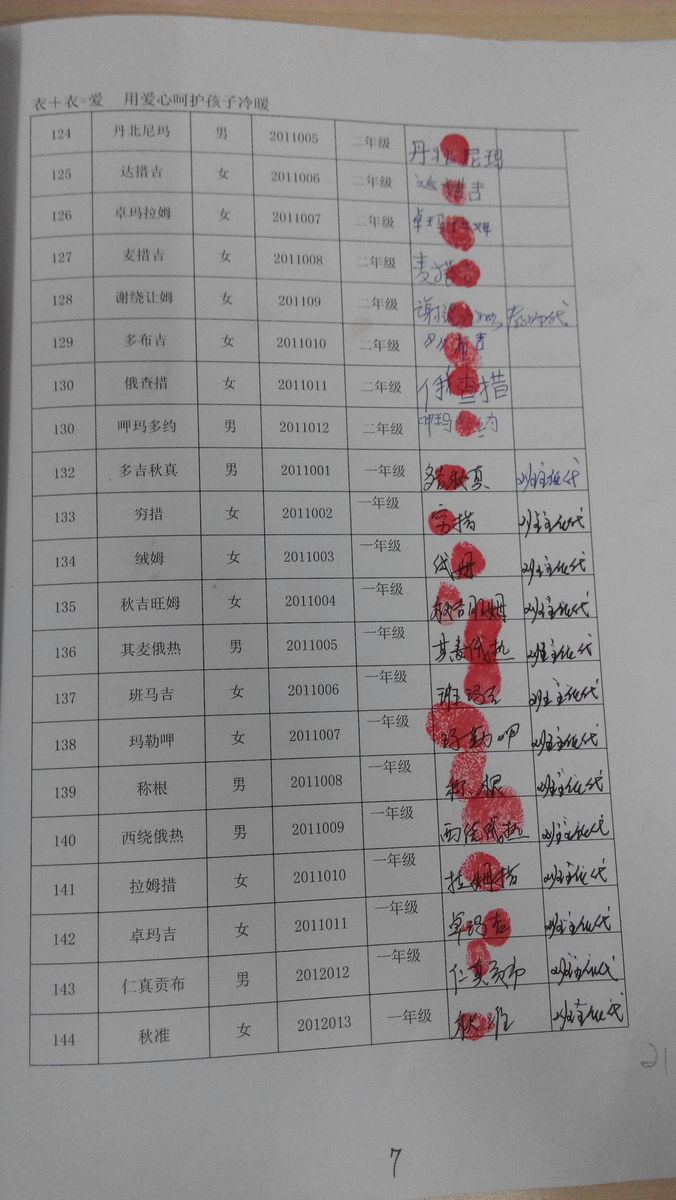 衣+衣=爱 用爱心呵护孩子冷暖
124 丹北尼玛 男 2011005 二年级 丹北尼玛
125 达措吉 女 2011006 二年级 达措吉
126 卓玛拉姆 女 2011007 二年级 卓玛拉姆
127 麦措吉 女 2011008 二年级 麦措
128 谢绕让姆 女 201109 二年级 谢
129 多布吉 女 2011010 二年级 多布吉
130 俄查措 女 2011011 二年级 俄查措
130 呷玛多约 男 2011012 二年级 呷玛多约
132 多吉秋真 男 2011001 一年级 多吉秋真 班主任代
133 穷措 女 2011002 一年级 穷措 班主任代
134 绒姆 女 2011003 一年级 绒姆 班主任代
135 秋吉旺姆 女 2011004 一年级 秋吉旺姆 班主任代
136 其麦俄热 男 2011005 一年级 其麦俄热 班主任代
137 班马吉 女 2011006 一年级 班玛吉 班主任代
138 玛勒呷 女 2011007 一年级 玛勒呷 班主任代
139 称根 男 2011008 一年级 称根 班主任代
140 西绕俄热 男 2011009 一年级 西绕俄热 班主任代
141 拉姆措 女 2011010 一年级 拉姆措 班主任代
142 卓玛吉 女 2011011 一年级 卓玛吉 班主任代
143 仁真贡布 男 2012012 一年级 仁真贡布 班主任代
144 秋准 女 2012013 一年级 秋准 班主任代
21
7